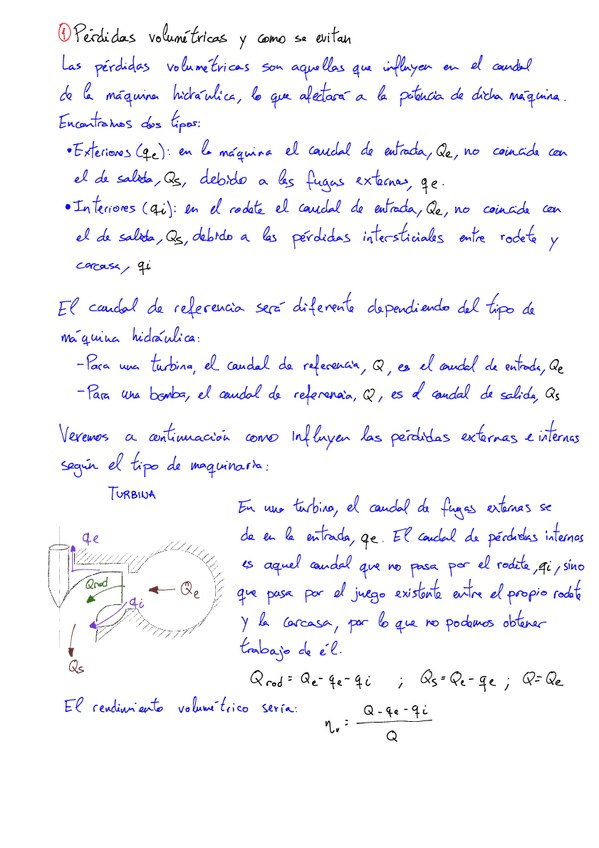 ① Pérdidas volumétricas y como se evitan
Las pérdidas volumétricas son aquellas que influyen en el caudal
de la máquina hidráulica, lo que afectará a la potencia de dicha máquina.
Encontramos dos tipos:
• Exteriores (qe): en la máquina el caudal de entrada, Qe, no coincide con
el de salida, Qs, debido a las fugas externas, qe.
• Interiores (qi): en el rodete el caudal de entrada, Qe, no coincide con
el de salida, Qs, debido a las pérdidas intersticiales entre rodete y
carcasa, qi
El caudal de referencia será diferente dependiendo del tipo de
máquina hidráulica:
- Para una turbina, el caudal de referencia, Q, es el caudal de entrada, Qe
- Para una bomba, el caudal de referencia, Q, es el caudal de salida, Qs
Veremos a continuación como influyen las pérdidas externas e internas
según el tipo de maquinaria:
TURBINA
qe
Qrod
qi
Qe
Qs
En una turbina, el caudal de fugas externas se
da en la entrada, qe. El caudal de pérdidas internas
es aquel caudal que no pasa por el rodete, qi, sino
que pasa por el juego existente entre el propio rodete
y la carcasa, por lo que no podemos obtener
trabajo de él.
Qrod = Qe - qe - qi ; Qs = Qe - qe ; Q = Qe
El rendimiento volumétrico sería:
ηv = (Q - qe - qi) / Q